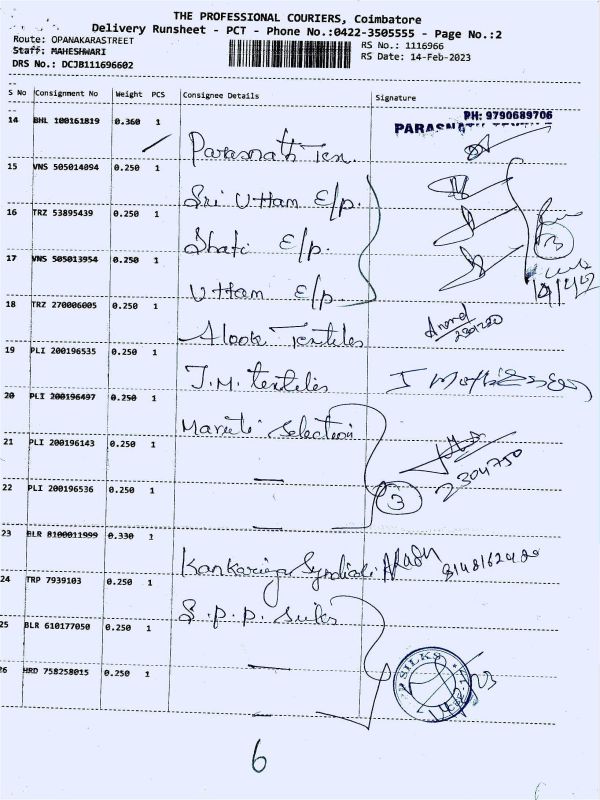 THE PROFESSIONAL COURIERS, Coimbatore
Delivery Runsheet - PCT - Phone No.:0422-3505555 - Page No.:2
Route: OPANAKARASTREET
RS No.: 1116966
Staff: MAHESHWARI
RS Date: 14-Feb-2023
DRS No.: DCJB111696602
S No Consignment No Weight PCS Consignee Details Signature
PH: 9790689706
14 BHL 100161819 0.360 1 Parasnath Tex. PARASNATH
15 VNS 505014094 0.250 1 Sri Uttam E/p.
16 TRZ 53895439 0.250 1 Shafi E/p. 3
17 VNS 505013954 0.250 1 Uttam E/p
18 TRZ 270006005 0.250 1 Alook Textiles
19 PLI 200196535 0.250 1 J.M. textiles
20 PLI 200196497 0.250 1 Maruti Selection
21 PLI 200196143 0.250 1 — 2304750
22 PLI 200196536 0.250 1 — 3
23 BLR 8100011999 0.330 1 Kankariya Syndicate
24 TRP 7939103 0.250 1 S.p.p. silks
25 BLR 610177050 0.250 1 — SILKS
26 HRD 758258015 0.250 1 —
6